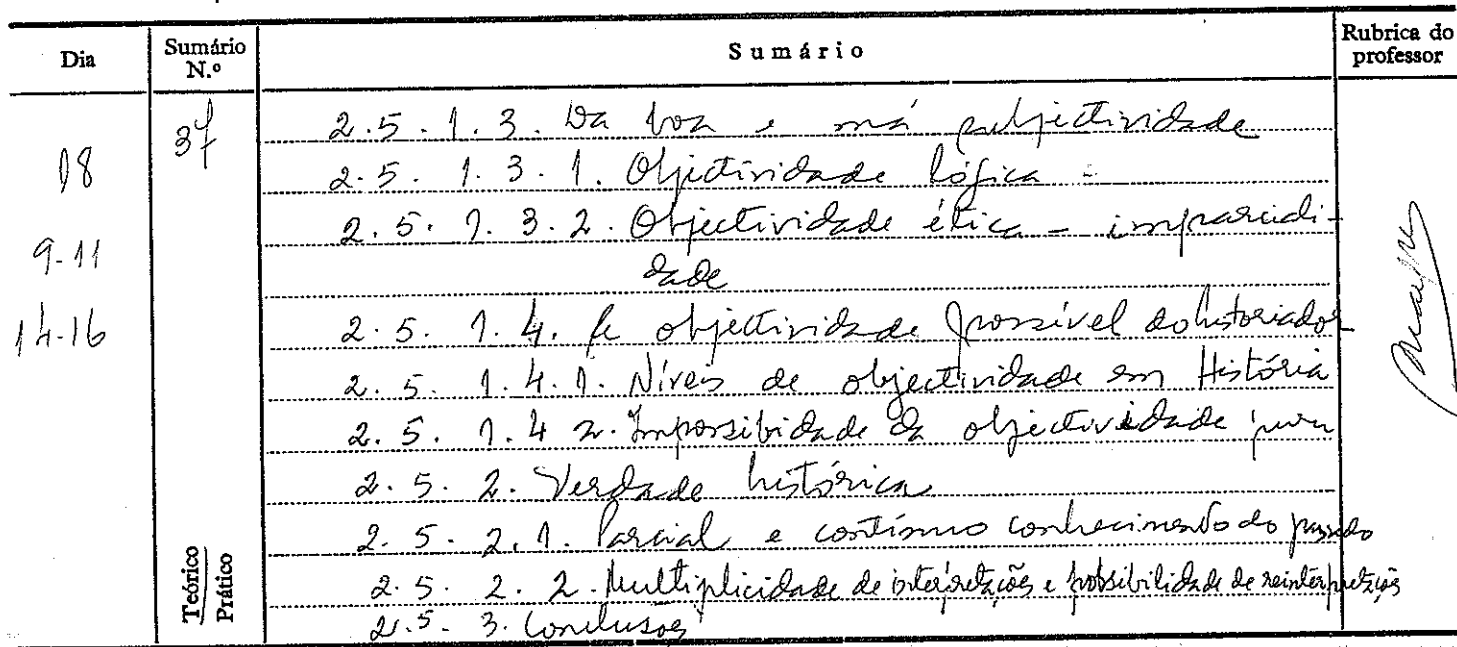 Dia Sumário N.º Sumário Rubrica do professor
18
9-11
14-16
37
2.5.1.3. Da boa e má subjectividade
2.5.1.3.1. Objectividade lógica -
2.5.1.3.2. Objectividade ética - imparciali-
dade
2.5.1.4. A objectividade possível do historiador
2.5.1.4.1. Níveis de objectividade em História
2.5.1.4.2. Impossibidade da objectividade pura
2.5.2. Verdade histórica
2.5.2.1. Parcial e contínuo conhecimento do passado
2.5.2.2. Multiplicidade de interpretações e possibilidade de reinterpretações
2.5.3. Conclusões
Teórico
Prático